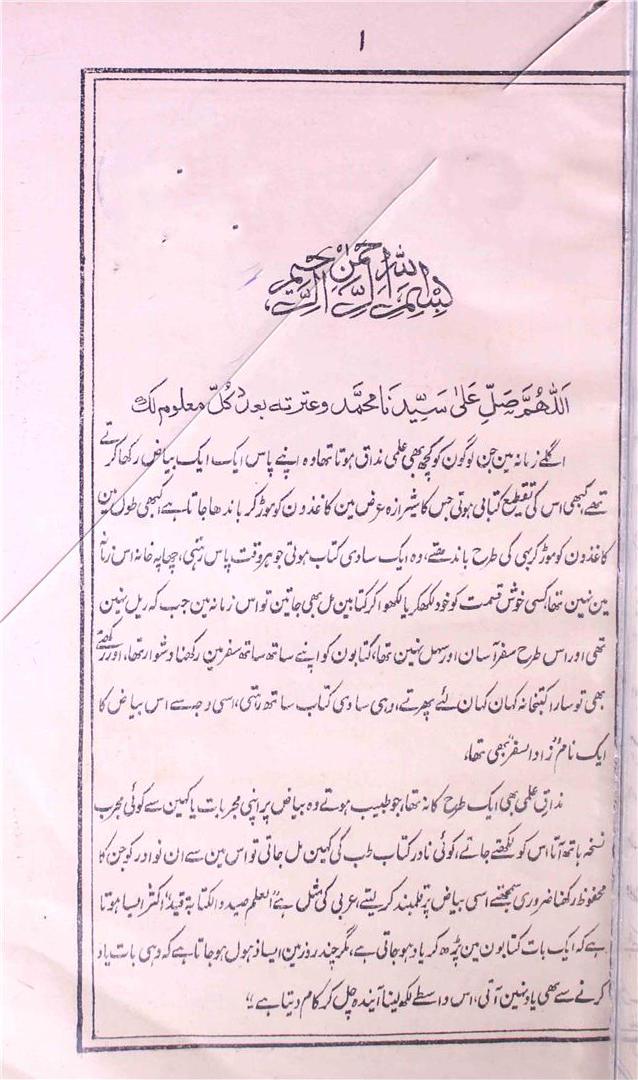 ۱
بسم الله الرحمن الرحيم
اَللّٰهُمَّ صَلِّ عَلىٰ سَيِّدِنَا محمَّد وعترته بعدد كُلّ معلوم لك
اگلے زمانہ مین جن لوگون کو کچھ بھی علمی مذاق ہوتا تھا وہ اپنے پاس ایک ایک بیاض رکھا کرتے
تھے، کبھی اس کی تقطیع کتابی ہوتی جس کا شیرازہ عرض مین کاغذون کو موڑ کر باندھا جاتا ہے کبھی طول مین
کاغذون کو موڑ کر بہی کی طرح باندھتے، وہ ایک سادی کتاب ہوتی جو ہر وقت پاس رہتی، چھاپہ خانہ اس زمانہ
مین نہین تھا، کسی خوش قسمت کو خود لکھکر یا لکھوا کر کتابین مل بھی جاتین تو اس زمانہ مین جب کہ ریل نہین
تھی اور اس طرح سفر آسان اور سہل نہین تھا، کتابون کو اپنے ساتھ ساتھ سفر مین رکھنا دشوار تھا، اور رکھتے
بھی تو سارا کتبخانہ کہان کہان لئے پھرتے، وہی سادی کتاب ساتھ رہتی، اسی وجہ سے اس بیاض کا
ایک نام "زاد السفر" بھی تھا،
مذاق علمی بھی ایک طرح کا نہ تھا، جو طبیب ہوتے وہ بیاض پر اپنی مجربات یا کہین سے کوئی مجرب
نسخہ ہاتھ آتا اس کو لکھتے جاتے، کوئی نادر کتاب طب کی کہین مل جاتی تو اس مین سے ان نوادر کو جن کا
محفوظ رکھنا ضروری سمجھتے اسی بیاض پر قلمبند کر لیتے، عربی کی مثل ہے "العلم صید والکتابة قید" اکثر ایسا ہوتا
ہے کہ ایک بات کتابون مین پڑھ کر یاد ہو جاتی ہے، مگر چند روز مین ایسا ذہول ہو جاتا ہے کہ وہی بات یاد
کرنے سے بھی یاد نہین آتی، اس واسطے لکھ لینا آیندہ چل کر کام دیتا ہے"